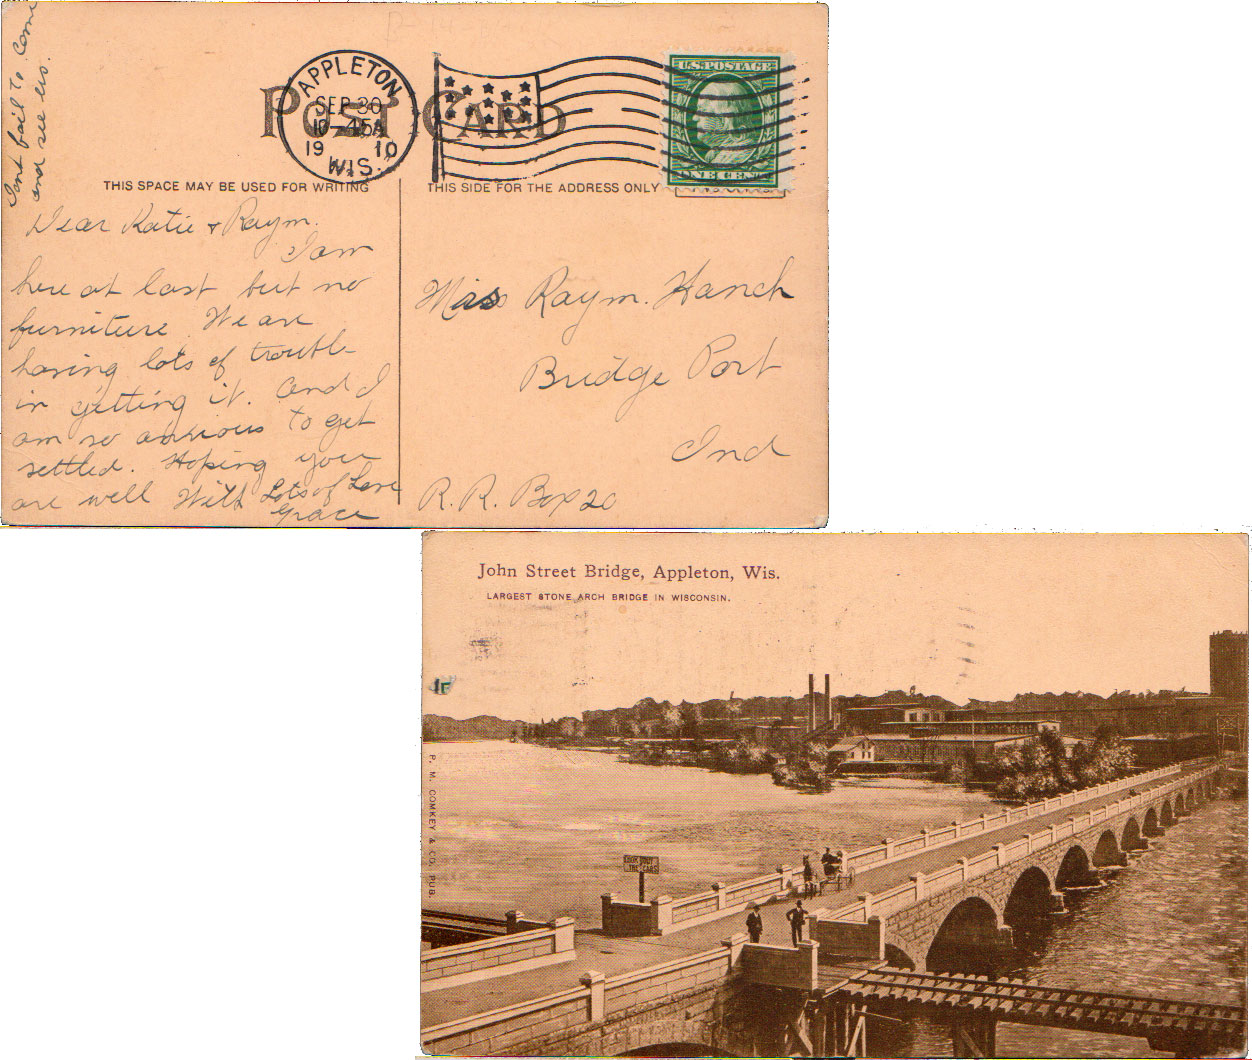 Dont fail to come
and see us.
POST CARD
APPLETON
SEP 30
10-45A
19 10
WIS.
U.S. POSTAGE
ONE CENT
THIS SPACE MAY BE USED FOR WRITING
THIS SIDE FOR THE ADDRESS ONLY
Dear Katie & Raym.
I am
here at last but no
furniture. We are
having lots of trouble
in getting it. And I
am so anxious to get
settled. Hoping you
are well With Lots of Love
Grace
Miss Raym. Hanch
Bridge Port
Ind
R. R. Box 20
John Street Bridge, Appleton, Wis.
LARGEST STONE ARCH BRIDGE IN WISCONSIN.
P. M. CONKEY & CO. PUB.
LOOK OUT
CARS